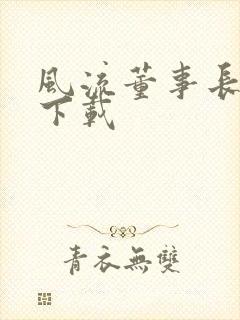 風流董事長
下載
青衣無雙